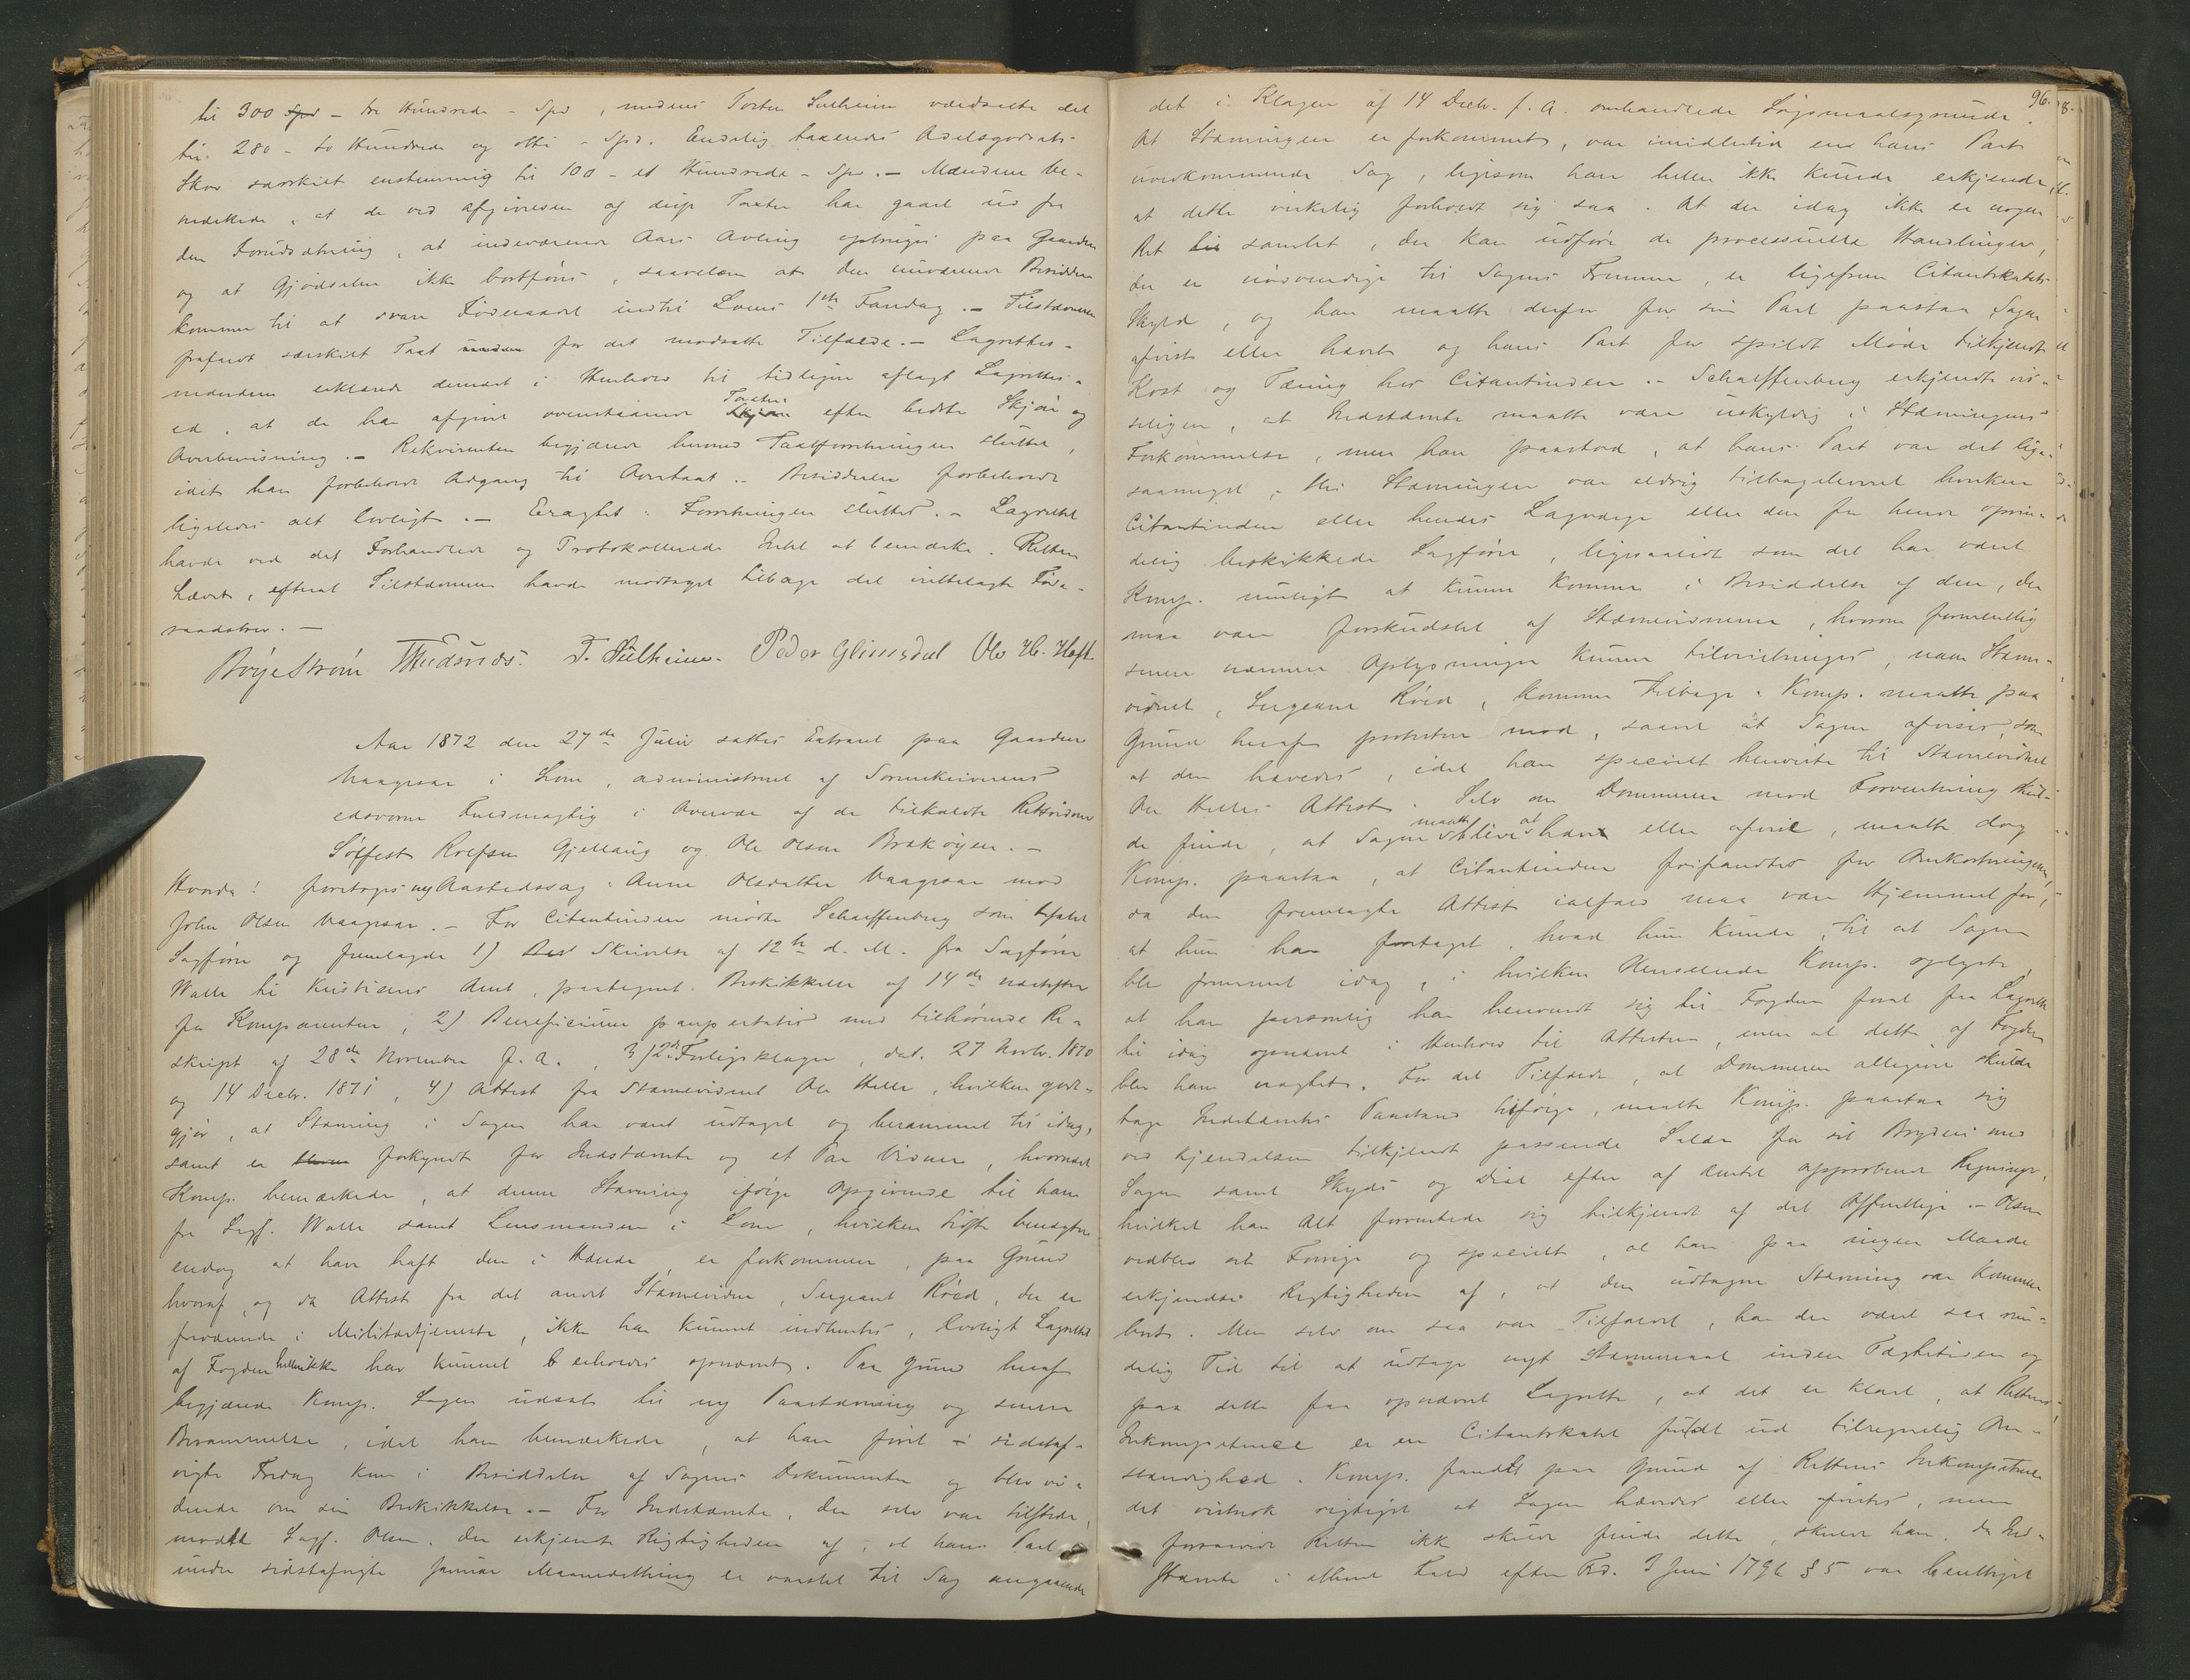 til 300 Spd - tre Hundrede - Spd, medens Torten Sulheim værdsatte det
til 280 - to Hundrede og otti - Spd. Endelig taxeredes Aaselsgodsets
Skov særskilt enstemmig til 100 - et Hundrede - Spd. - Mændene be-
mærkede, at de ved afgivelsen af disse Taxter har gaaet ud fra
den Forudsætning, at indeværende Aars Avling opbruges paa Gaarden
og at Gjødselen ikke bortføres, saavelsom at den nuværende Besidder
kommer til at svare Føderaadet indtil Lovens 1ste Fardag. - Tilstævneren
frafaldt særskilt Taxt for det modsatte Tilfælde. - Lagrettes-
mændene erklærede dernæst i Henhold til tidligere aflagt Lagrettes-
ed, at de har afgivet ovenstaaende Taxter efter bedste Skjøn og
Overbevisning. - Rekvirenten begjærede hermed Taxtforretningen sluttet,
idet han forbeholdt Adgang til Overtaxt. - Besidderen forbeholdt
ligeledes alt lovligt. - Eragtet: Forretningen sluttet. - Lagrettet
havde ved det Forhandlede og Protokollerede Intet at bemærke. Retten
hævet, efterat Tilstævneren havde modtaget tilbage det indlagte Føde-
raadsbrev. -
Børgestrøm Thudsveds. T. Sulheim. Peder Glimsdal Ole H. Hoft
Aar 1872 den 27de Juli sattes Extraret paa Gaarden
Vaagsaa i Lom, administreret af Sorenskriverens
edsvorne Fuldmægtig i Overvær af de tilkaldte Retsvidner
Sølfest Rolfsen Gjellaug og Ole Olsen Brakøyen. -
Hvorda! foretoges ny Aastedssag: Anne Olsdatter Vaagsaa mod
John Olsen Vaagsaa. - For Citantinden mødte Schaeffenberg som befalet
Sagfører og fremlagde 1) Skrivelse af 12te d. M. fra Sagfører
Walle til Kristians Amt, paategnet Beskikkelse af 14de næstefter
for Komparenten, 2) Beneficium paupertatis med tilhørende Re-
skript af 28de November f. A., 3) 2de Forligsklager, dat. 27 Novbr. 1870
og 14 Decbr. 1871, 4) Attest fra Stævnevidnet Ole Helle, hvilken godt-
gjør, at Stævning i Sagen har været udtaget og berammet til idag,
samt er forkyndt for Indstævnte og et Par Vidner, hvornæst
Komp. bemærkede, at denne Stævning ifølge Opgivende til ham
fra Sagf. Walle samt Lensmanden i Lom, hvilken sidste benægtede
endog at have haft den i Hænde, er forkommen, paa Grund
hvoraf, og da Attest fra det andet Stævnevidne, Sergeant Røed, der er
fraværende i Militærtjeneste, ikke har kunnet indhentes, lovligt Lagrettet
af Fogden heller ikke har kunnet erholdes opnævnt. Paa Grund heraf
begjærede Komp. Sagen udsat til ny Paastævning og senere
Berammelse, idet han bemærkede, at han først i sidstaf-
vigte Fredag kom i Besiddelse af Sagens Dokumenter og blev vi-
dende om sin Beskikkelse. - For Indstævnte, der selv var tilstede,
mødte Sagf. Olsen, der erkjendte Rigtigheden af, at hans Part
under sidstafvigte Januar Maanedsthing er varslet til Sag angaaende
96.
det i Klagen af 14 Decbr. f. A. omhandlede Søgsmaalsgrunde.
At Stævningen er forkommet, var imidlertid en hans Part
uvedkommende Sag, ligesom han heller ikke kunde erkjende,
at dette virkelig forholdt sig saa. At der idag ikke er nogen
Ret samlet, der kan udføre de processuelle Handlinger,
der er nødvendige til Sagens Fremme, er ligefrem Citantskabets
Skyld, og han maatte derfor for sin Part paastaa Sagen
afvist eller hævet og hans Part for spildt Møde tilkjendt
Kost og Tæring hos Citantinden. - Schaeffenberg erkjendte vis-
seligen, at Indstævnte maatte være uskyldig i Stævningens
Forkommelse, men han paastod, at hans Part var det lige-
saameget, thi Stævningen var aldrig tilbageleveret hverken
Citantinden eller hendes Lagværge eller den for hende oprin-
delig beskikkede Sagfører, ligesaalidt som det har været
Komp. muligt at kunne komme i Besiddelse af den, der
maa være forskudslet af Stævnevidnerne, hvorom formentlig
senere nærmere Oplysninger kunne tilveiebringes, naar Stævne-
vidnet, Sergeant Røed, kommer tilbage. Komp. maatte paa
Grund heraf protestere mod, saavel at Sagen afvises, som
at den hæves, idet han specielt henviste til Stævnevidnet
Ole Helles Attest. Selv om Dommeren mod Forventning skul-
de finde, at Sagen maatte blive at hæve eller afvise, maatte dog
Komp. paastaa, at Citantinden frifandtes for Omkostningerne,
da den fremlagte Attest ialfald maa være Hjemmel for,
at hun har foretaget, hvad hun kunde, til at Sagen
blev fremmet idag, i hvilken Henseende Komp. oplyste,
at han personlig har henvendt sig til Fogden forat faa Lagrette
til idag opnævnt i Henhold til Attesten, men at dette af Fogden
blev ham negtet. For det Tilfælde, at Dommeren alligevel skulde
tage Indstævntes Paastand tilfølge, maatte Komp. paastaa sig
ved Kjendelsen tilkjendt passende Salær for sit Bryderi med
Sagen samt Skyds og Diæt efter af Amtet approberet Regning,
hvilket han Alt forventede sig tilkjendt af det Offentlige. - Olsen
vedblev sit Forrige og specielt, at han paa ingen Maade
erkjendte Rigtigheden af, at den udtagne Stævning var kommen
bort. Men selv om saa var Tilfældet, har der været saa rum-
delig Tid til at udtage nyt Stævnemaal inden Tægtetiden og
paa dette faa opnævnt Lagrette, at det er klart, at Rettens
Inkompetence er en Citantskabet fuldt ud tilregnelig Om-
stændighed. Komp. fandt paa Grund af Rettens Inkompetence
det vistnok rigtigst at Sagen hævedes eller afvistes, men
forsaavidt Retten ikke skulde finde dette, skulde han, da Ind-
stævnte i ethvert Fald efter Frd. 3 Juni 1796 § 5 var berettiget